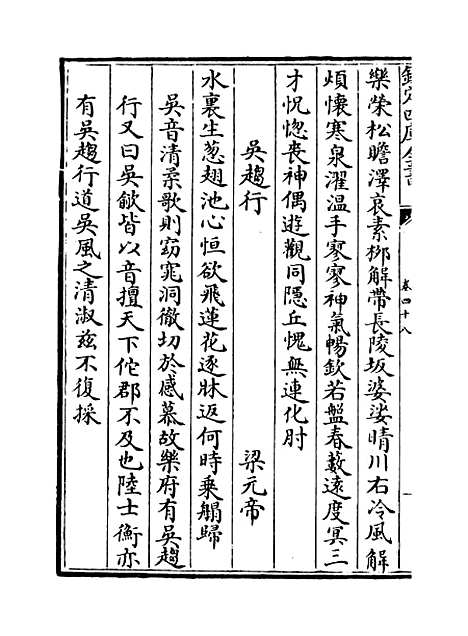 欽定四庫全書
卷四十八
樂榮松瞻澤哀素柳解帶長陵坂婆娑晴川右冷風解
煩懷寒泉濯温手寥寥神氣暢欽若盤春藪遠度冥三
才怳惚喪神偶遊觀同隱丘愧無連化肘
吳趨行 梁元帝
水裏生葱翅池心恒欲飛蓮花逐牀返何時乗鶂歸
吳音清柔歌則窈窕洞徹切於感慕故樂府有吳趨
行又曰吳歈皆以音擅天下佗郡不及也陸士衡亦
有吳趨行道吳風之清淑兹不復採